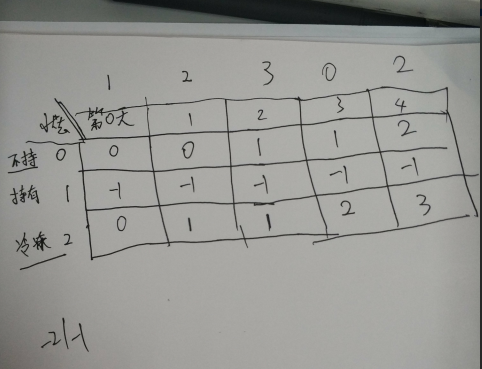 1 2 3 0 2
状态 第0天 1 2 3 4
不持 0 0 0 1 1 2
持有 1 -1 -1 -1 -1 -1
冷冻 2 0 1 1 2 3
-2 | -1